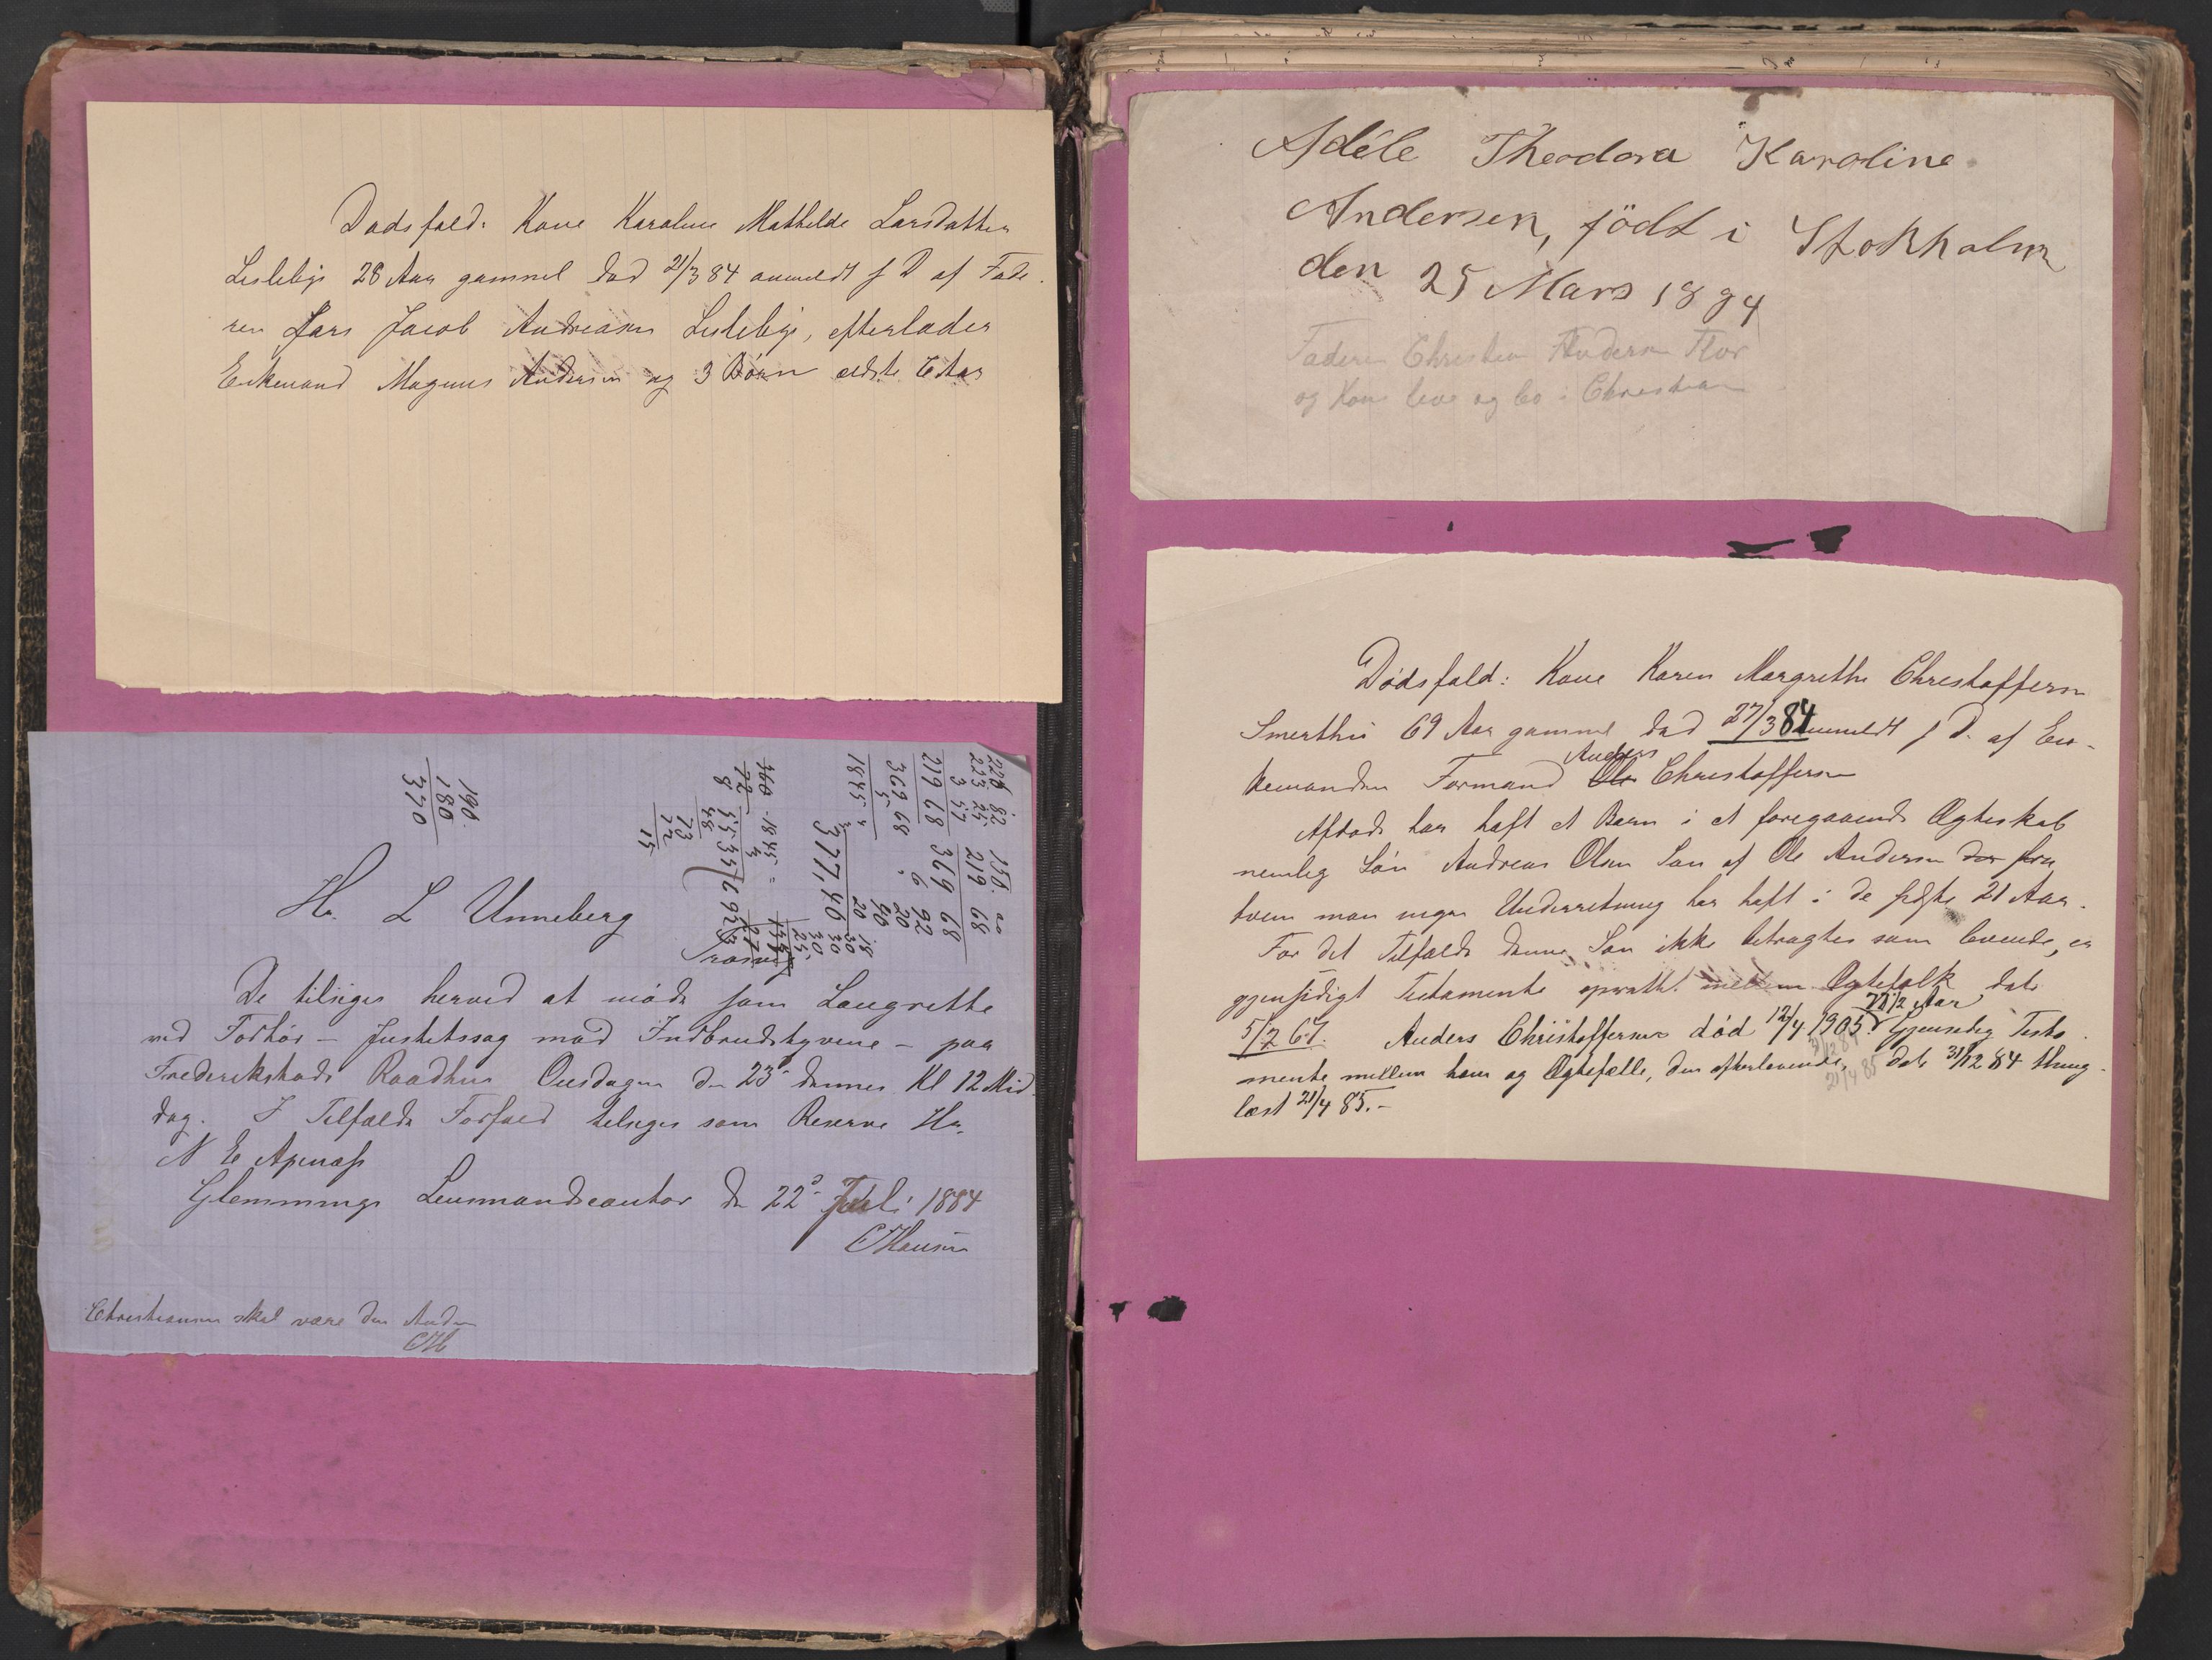 Dødsfald: Kone Karoline Mathilde Larsdatter
Lisleby 28 Aar gammel død 2/3 84 anmeldt s D af Fade-
ren Lars Jacob Andreasen Lisleby, efterlader
Enkemand Magnus Andersen og 3 Børn ældste 6 Aar
226 82
223 25
3 57
219 68
369 68
5
1845
150
219 68
369 68
6 92
20
90
20
377,46
190.
180
370
Hr. L Unneberg
Trosvig
De tilsiges herved at møde som Laugrette
ved Forhør - Justitssag mod Indbrudstyvene - paa
Frederikstads Raadhus Onsdagen den 23de dennes Kl 12 Mid-
dag. I Tilfælde Forfald tilsiges som Reserve Hr.
N E Apenæs
Glemminge Lensmandscontor den 22de Juli 1884
C Hansen
Christiansen skal være den Anden
CH
Adéle Theodora Karoline
Andersen, födt i Stokholm
den 25 Mars 1894
Faderen Christian Andersen Flor
og Kone leve og bo i Christian
Dødsfald: Kone Karen Margrethe Christoffersen
Smerthu 69 Aar gammel død 27/3 84 anmeldt s D. af En-
kemanden Formand Ole Anders Christoffersen
Afdøde har haft et Barn i et foregaaende Ægteskab
nemlig Søn Andreas Olsen Søn af Ole Andersen der fra
hvem man ingen Underretning har haft i de sidste 21 Aar.
For det Tilfælde denne Søn ikke betragtes som levende, er
gjensidigt Testamente oprettet mellem Ægtefolk dat.
5/2 67. Anders Christoffersen død 12/4 1905. 77 1/2 Aar Gjensidig Testa-
mente mellem ham og Ægtefælle, den efterlevende, dat. 31/12 84 thing-
læst 21/4 85.-
31/12 84
21/4 85